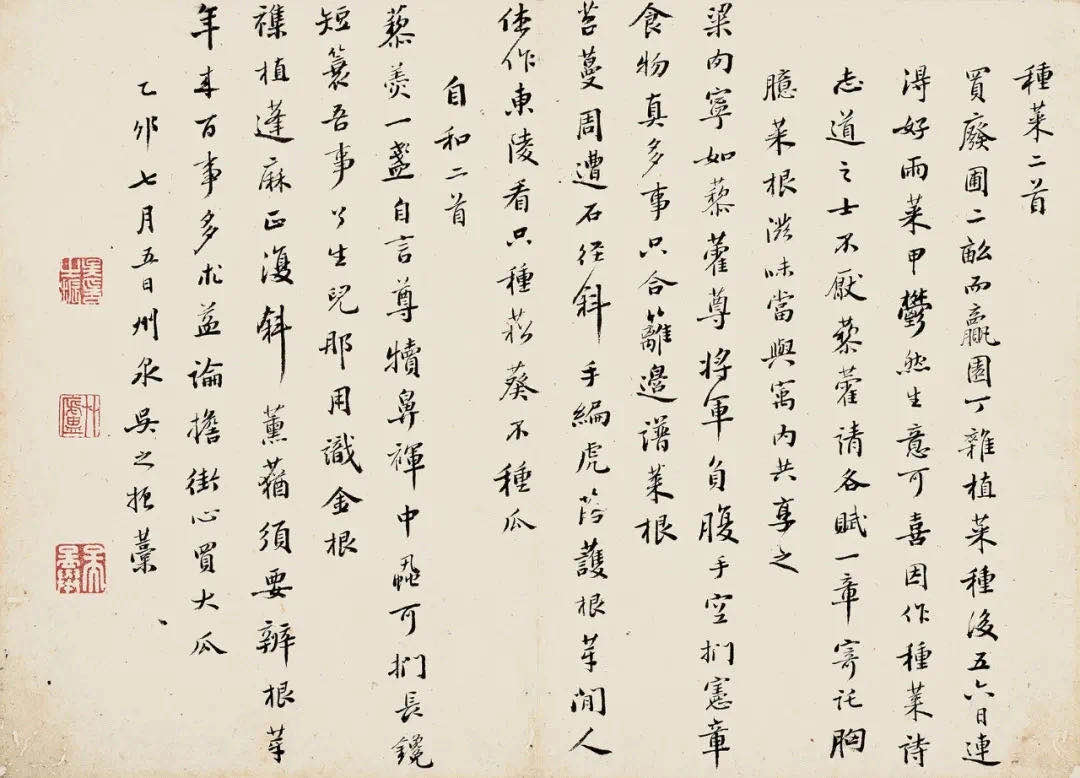 種菜二首
買廢圃二畝而贏園丁雜植菜種後五六日連
得好雨菜甲鬱然生意可喜因作種菜詩
志道之士不厭藜藿請各賦一章寄託胸
臆菜根滋味當與寓內共享之
梁肉寧如藜藿尊將軍負腹手空捫憲章
食物真多事只合籬邊譜菜根
苔蔓周遭石徑斜手編虎落護根芽閒人
佳作東陵看只種菘葵不種瓜
自和二首
藜羹一盞自言尊犢鼻褌中虱可捫長鑱
短簑吾事畢生兒那用識金根
襍植蓬麻正復斜薰蕕須要辨根芽
年來百事多求益論擔街心買大瓜
乙卯七月五日州泉吳之振藁